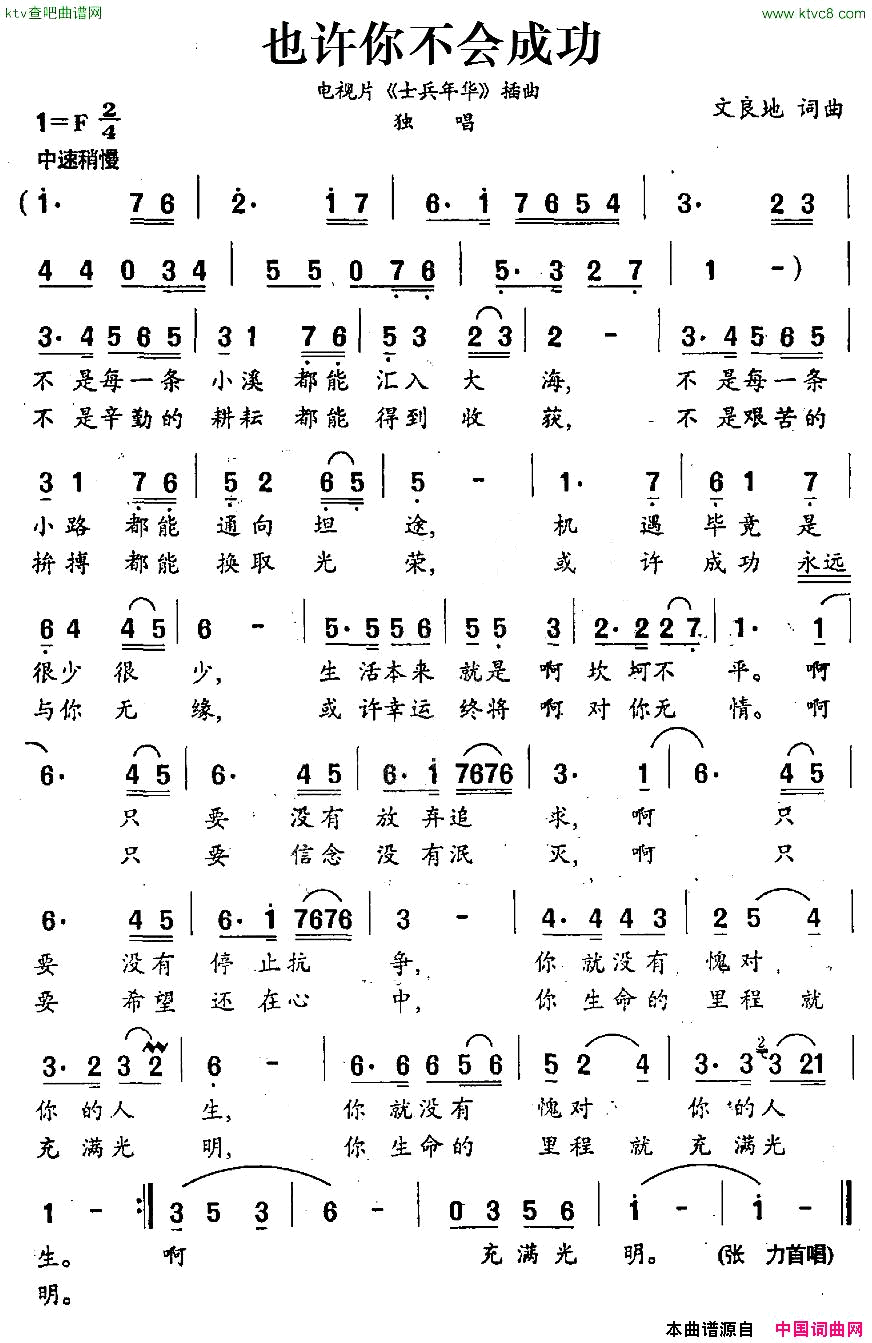 ktv查吧曲谱网 www.ktvc8.com
也许你不会成功
电视片《士兵年华》插曲
独 唱
文良地 词曲
1=F 2/4
中速稍慢
(1· 76 | 2· 17 | 6·1 7654 | 3· 23 |
44 034 | 55 076 | 5·3 27 | 1 -) |
3·4 565 | 31 76 | 53 23 | 2 - | 3·4 565 |
不是每一条 小溪 都能 汇入 大 海, 不是每一条
不是辛勤的 耕耘 都能 得到 收 获, 不是艰苦的
31 76 | 52 65 | 5 - | 1· 7 | 61 7 |
小路 都能 通向 坦 途, 机 遇 毕竟 是
拚搏 都能 换取 光 荣, 或 许 成功 永远
64 45 | 6 - | 5·5 56 | 55 3 | 2·2 27 | 1· 1 |
很少 很 少, 生活本来 就是 啊 坎坷不 平。 啊
与你 无 缘, 或许幸运 终将 啊 对你无 情。 啊
6· 45 | 6· 45 | 6·1 7676 | 3· 1 | 6· 45 |
只 要 没有 放弃追 求, 啊 只
只 要 信念 没有泯 灭, 啊 只
6· 45 | 6·1 7676 | 3 - | 4·4 43 | 25 4 |
要 没有 停止抗 争, 你就没有 愧对
要 希望 还在心 中, 你生命的 里程 就
3·2 32 | 6 - | 6·6 656 | 52 4 | 3·3 2 321 |
你的人 生, 你就没有 愧对 你的人
充满光 明, 你生命的 里程 就 充满光
1 - :‖ 35 3 | 6 - | 03 56 | 1 - | 1 - ‖
生。 啊 充满光 明。 (张 力首唱)
明。
本曲谱源自 中国词曲网